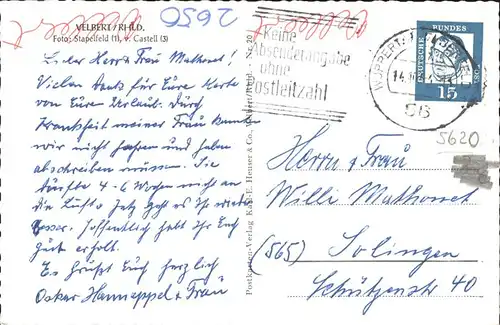 VELBERT / RHLD.
Foto: Stapelfeld (1), v. Castell (3)
2650
Lieber Herr & Frau Mathonet!
Vielen Dank für Eure Karte
von Eure Urlaub. Durch
Krankheit meiner Frau konnten
wir nicht fahren und haben
abschreiben müssen. Sie
durfte 4-6 Wochen nicht an
die Luft. Jetz geht es Ihr wieder
besser. Hoffentlich habt Ihr Euch
gut erholt.
Es Grüßt Euch herzlich
Oskar Hanneppel & Frau
Postkarten-Verlag Karl E. Heuser & Co., Velbert/Rhld., Nr. 20
Keine
Absenderangabe
ohne
Postleitzahl
WUPPERTAL
5B
DEUTSCHE BUNDESPOST
15
5620
Herrn & Frau
Willi Mathonet
(565) Solingen
Schützenstr 40